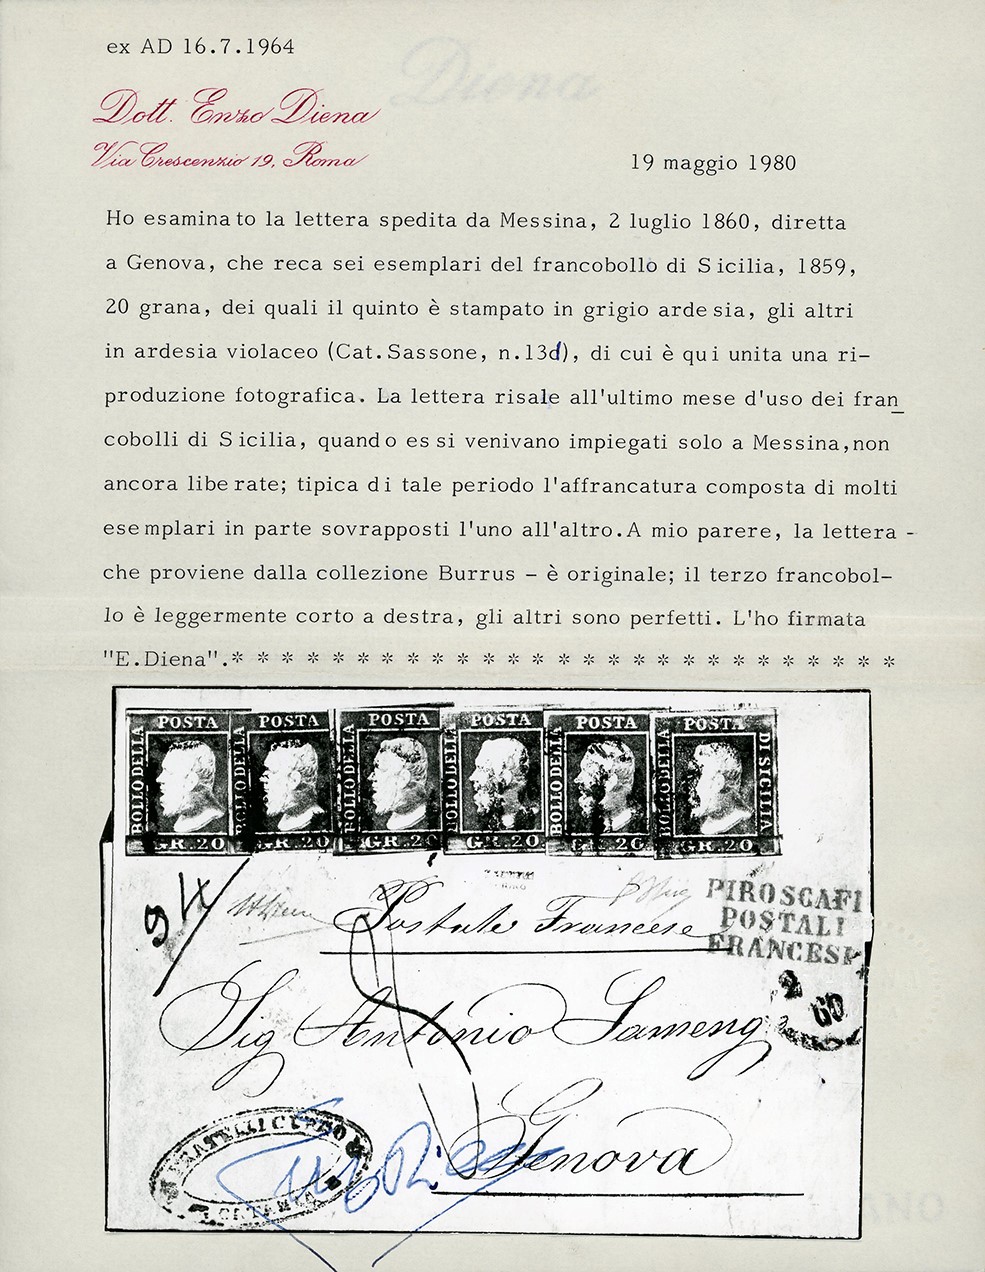 ex AD 16.7.1964
Diena
Dott. Enzo Diena
Via Crescenzio 19, Roma
19 maggio 1980
Ho esaminato la lettera spedita da Messina, 2 luglio 1860, diretta
a Genova, che reca sei esemplari del francobollo di Sicilia, 1859,
20 grana, dei quali il quinto è stampato in grigio ardesia, gli altri
in ardesia violaceo (Cat.Sassone, n.13d), di cui è qui unita una ri-
produzione fotografica. La lettera risale all'ultimo mese d'uso dei fran
cobolli di Sicilia, quando essi venivano impiegati solo a Messina,non
ancora liberate; tipica di tale periodo l'affrancatura composta di molti
esemplari in parte sovrapposti l'uno all'altro.A mio parere, la lettera -
che proviene dalla collezione Burrus - è originale; il terzo francobol-
lo è leggermente corto a destra, gli altri sono perfetti. L'ho firmata
"E.Diena".* * * * * * * * * * * * * * * * * * * * * * * * * * *
POSTA POSTA POSTA POSTA POSTA POSTA
BOLLO DELLA BOLLO DELLA BOLLO DELLA BOLLO DELLA BOLLO DELLA BOLLO DELLA DI SICILIA
GR.20 GR.20 GR.20 GR.20 GR.20 GR.20
94
Postale Francese
PIROSCAFI
POSTALI
FRANCESI
2
60
Sig Antonio Sameng
Genova
FRATELLI
CATANIA